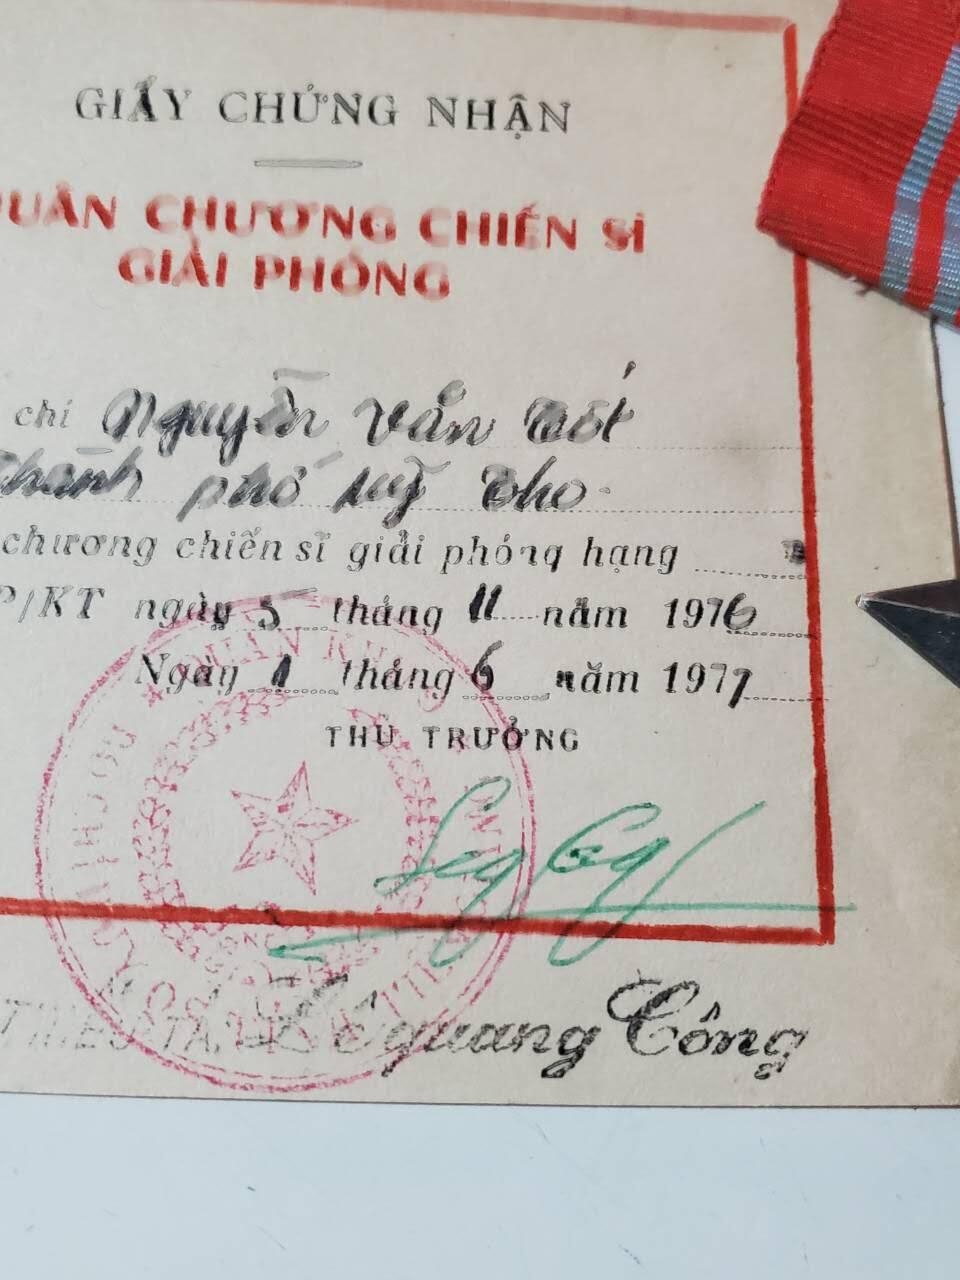 GIẤY CHỨNG NHẬN
UÂN CHƯƠNG CHIẾN SĨ
GIẢI PHÓNG
chí Nguyễn Văn Tốt
Thành phố Mỹ Tho
chương chiến sĩ giải phóng hạng
P/KT ngày 5 tháng 11 năm 1976
Ngày 1 tháng 6 năm 1977
THỦ TRƯỞNG
THIẾU TÁ: Lê quang Công